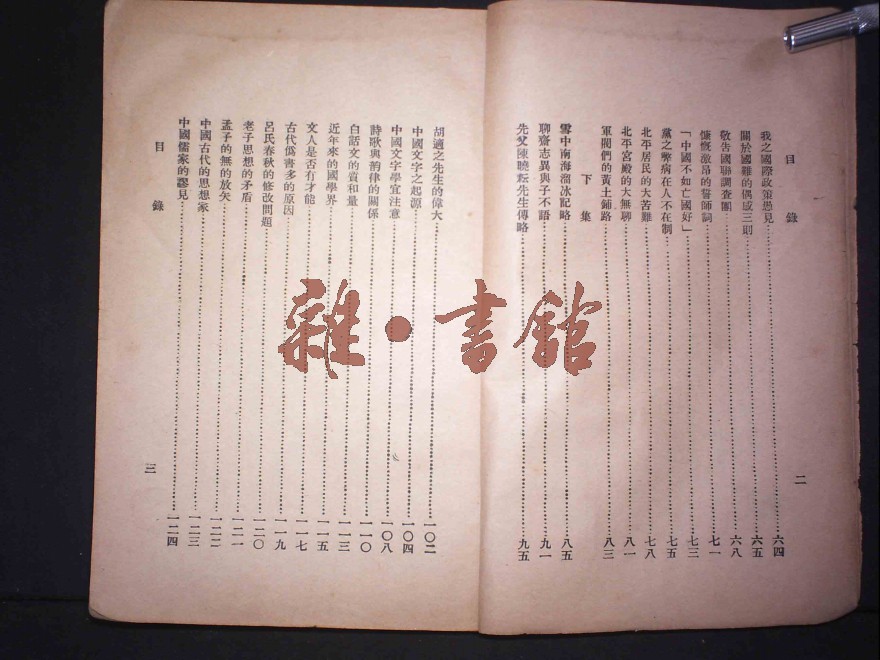 目錄
我之國際政策愚見 六四
關於國難的偶感三則 六五
敬告國聯調查團 六八
慷慨激昂的誓師詞 七一
「中國不如亡國好」 七三
黨之弊病在人不在制 七五
北平居民的大苦難 七八
北平宮殿的大無聊 八一
軍閥們的黃土鋪路 八三
下集
雪中南海溜冰記略 八五
聊齋志異與子不語 九一
先父陳曉耘先生傳略 九五
二
胡適之先生的偉大 一〇二
中國文字之起源 一〇四
中國文字學宜注意 一〇八
詩歌與韵律的關係 一一〇
白話文的質和量 一一三
近年來的國學界 一一五
文人是否有才能 一一七
古代僞書多的原因 一一九
呂氏春秋的修改問題 一二〇
老子思想的矛盾 一二一
孟子的無的放矢 一二二
中國古代的思想家 一二三
中國儒家的謬見 一二四
目錄
三
雜·書館